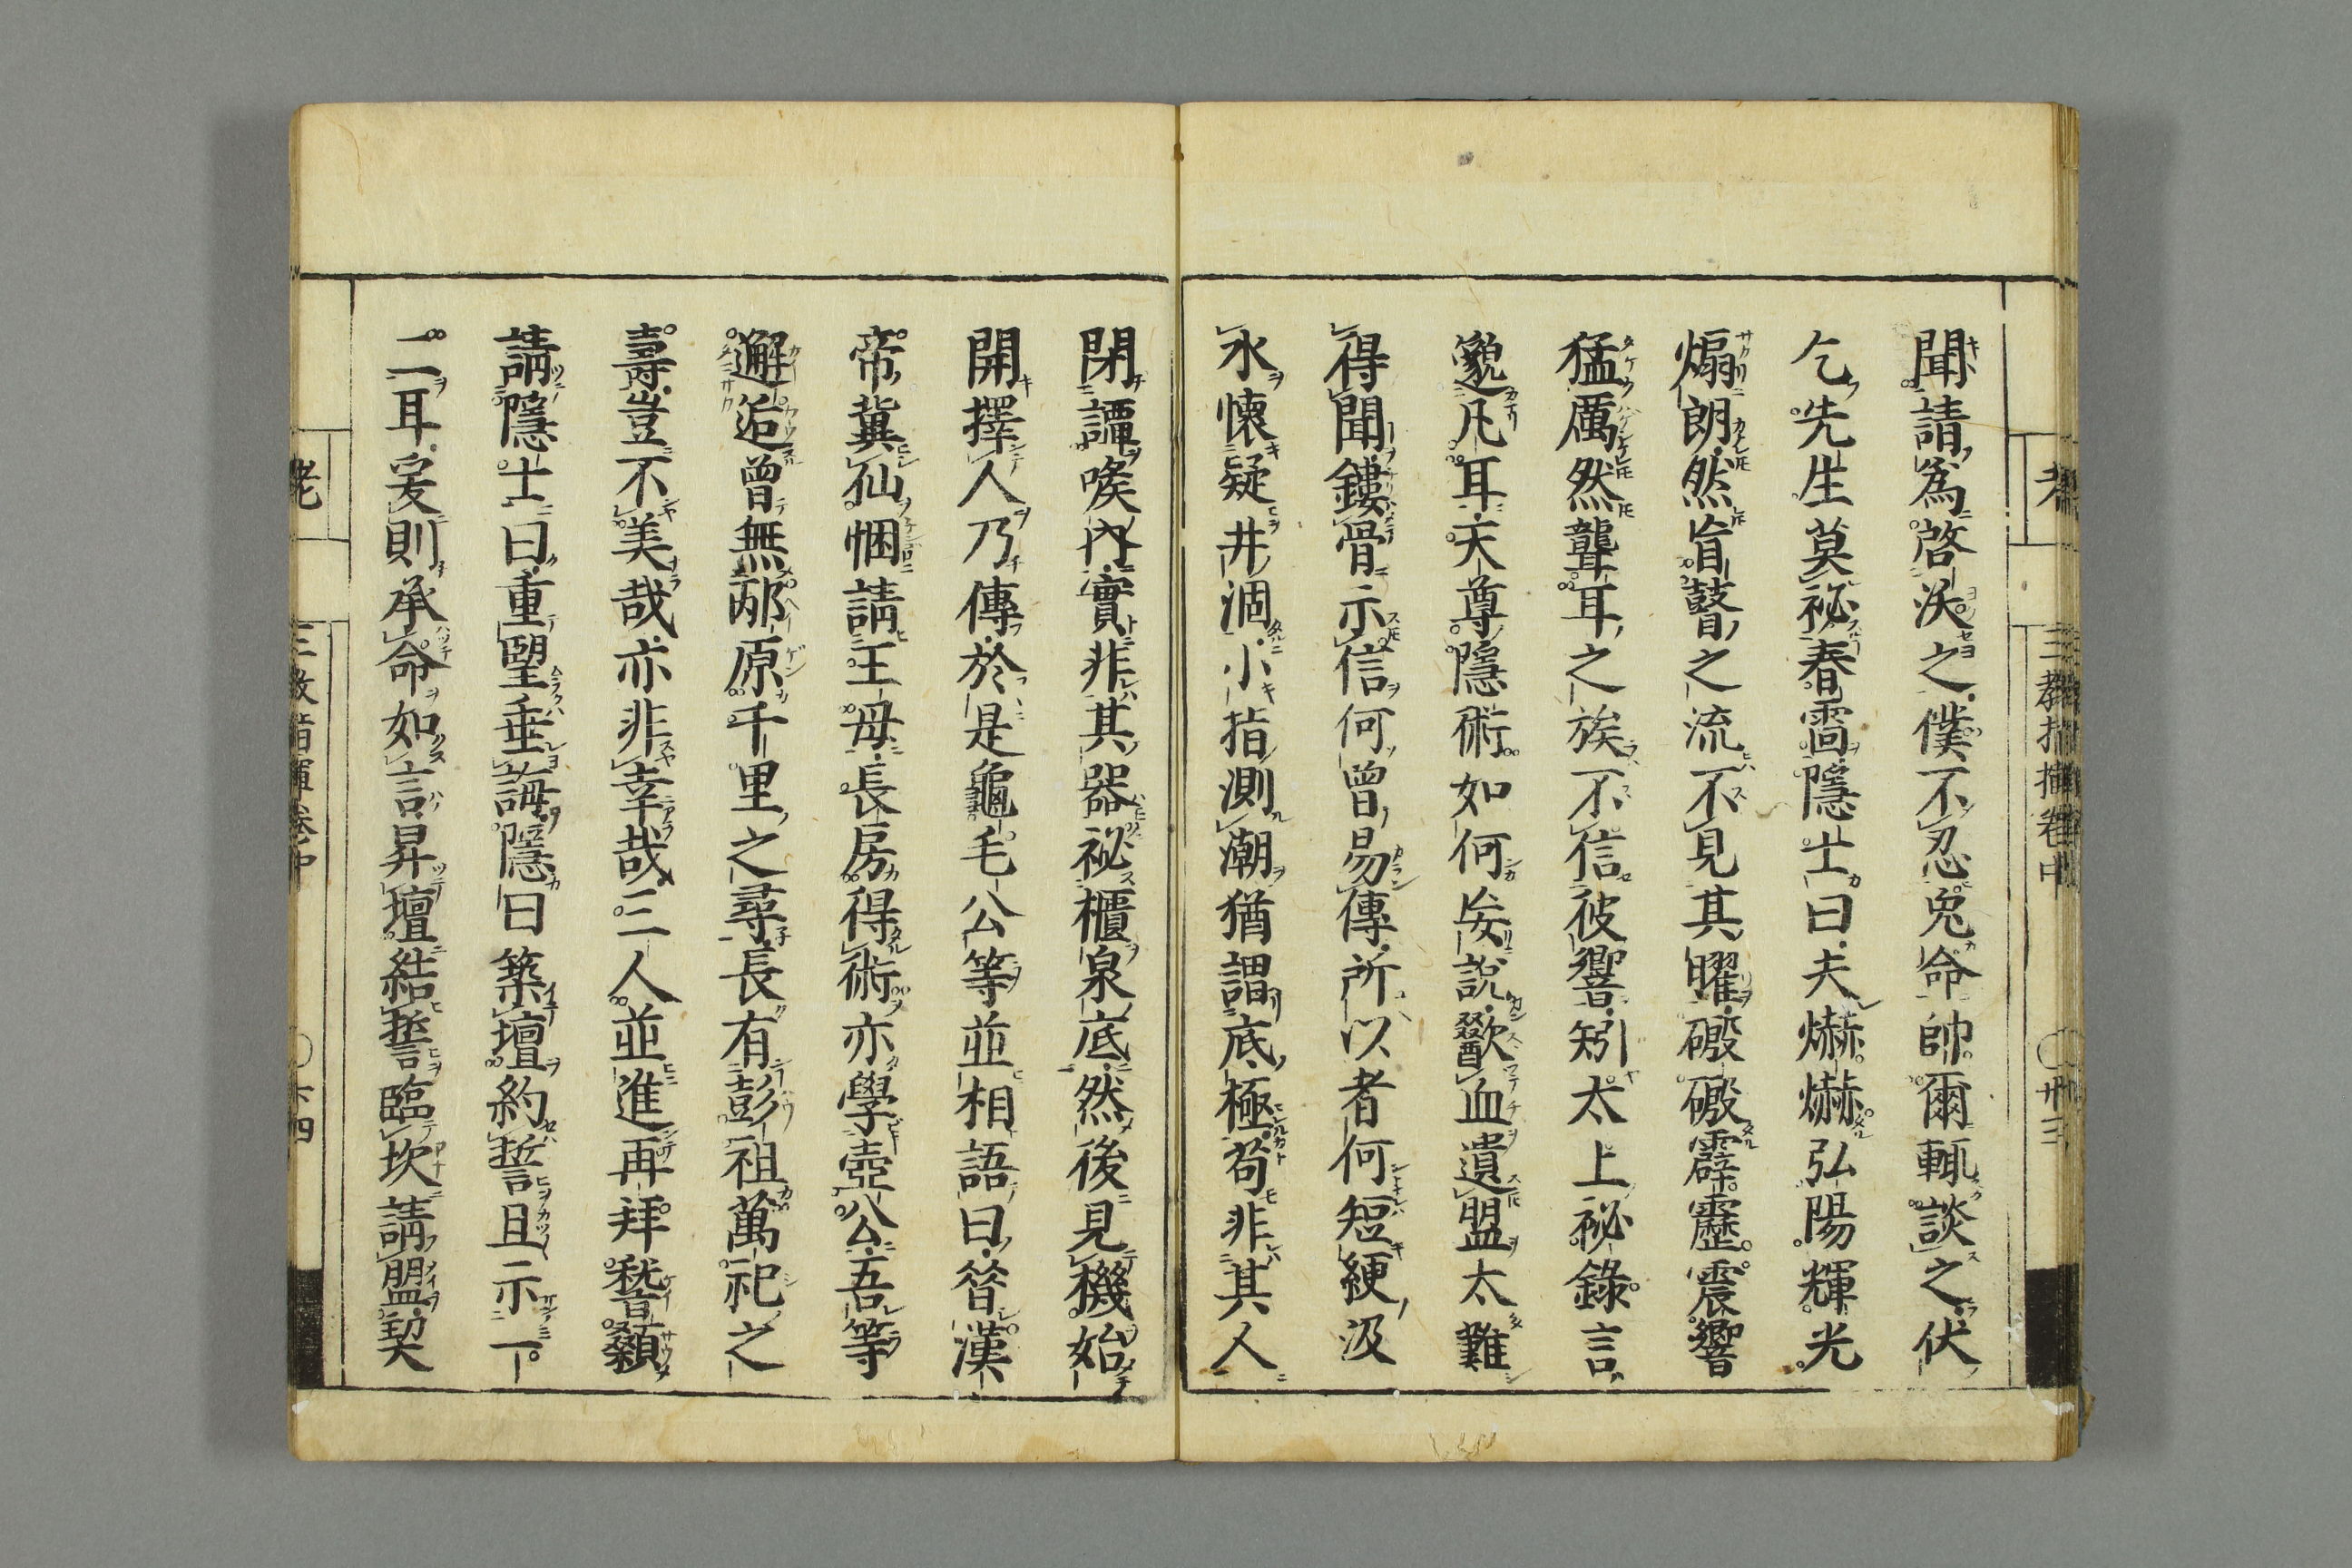 聞請為啓沃之僕不忍免命帥爾輙談之伏
乞先生莫祕春雷隱士曰夫爀爀弘陽輝光
煽朗然盲瞽之流不見其曜磤磤霹靂震響
猛厲然聾耳之族不信彼響矧太上祕錄言
邈凡耳天尊隱術如何妄說歠血遺盟太難
得聞鏤骨示信何曾易傳所以者何短綆汲
水懷疑井涸小指測潮猶謂底極苟非其人
閉譚喉內實非其器祕櫃泉底然後見機始
開擇人乃傳於是龜毛公等並相語曰昝漢
帝冀仙悃請王母長房得術亦學壺公吾等
邂逅曾無邴原千里之尋長有彭祖萬祀之
壽豈不美哉亦非幸哉三人並進再拜稽顙
請隱士曰重望垂誨隱曰築壇約誓且示一
二耳爰則承命如言昇壇結誓臨坎請盟契
三教指揮卷中
卅三
三教指揮卷中
卅四